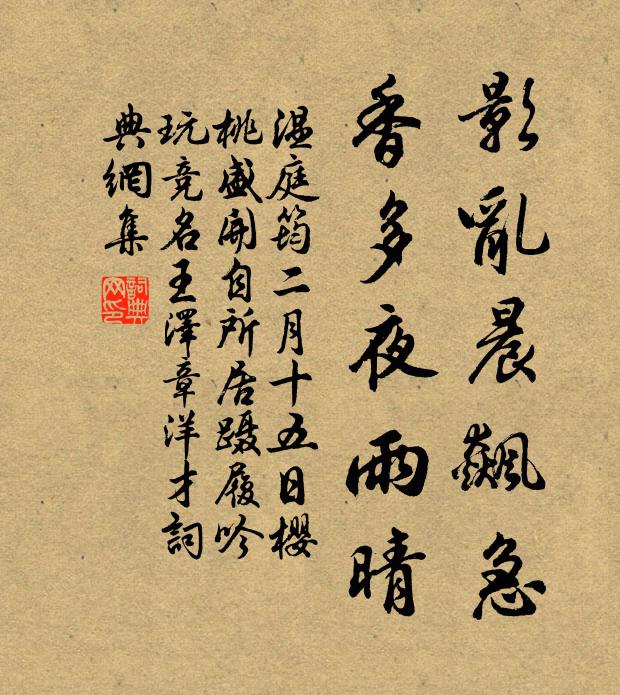 影亂晨飆急
香多夜雨晴
溫庭筠二月十五日櫻
桃盛開自所居躡履吟
玩竞名王澤章洋才詞
典網集
詞典
网印